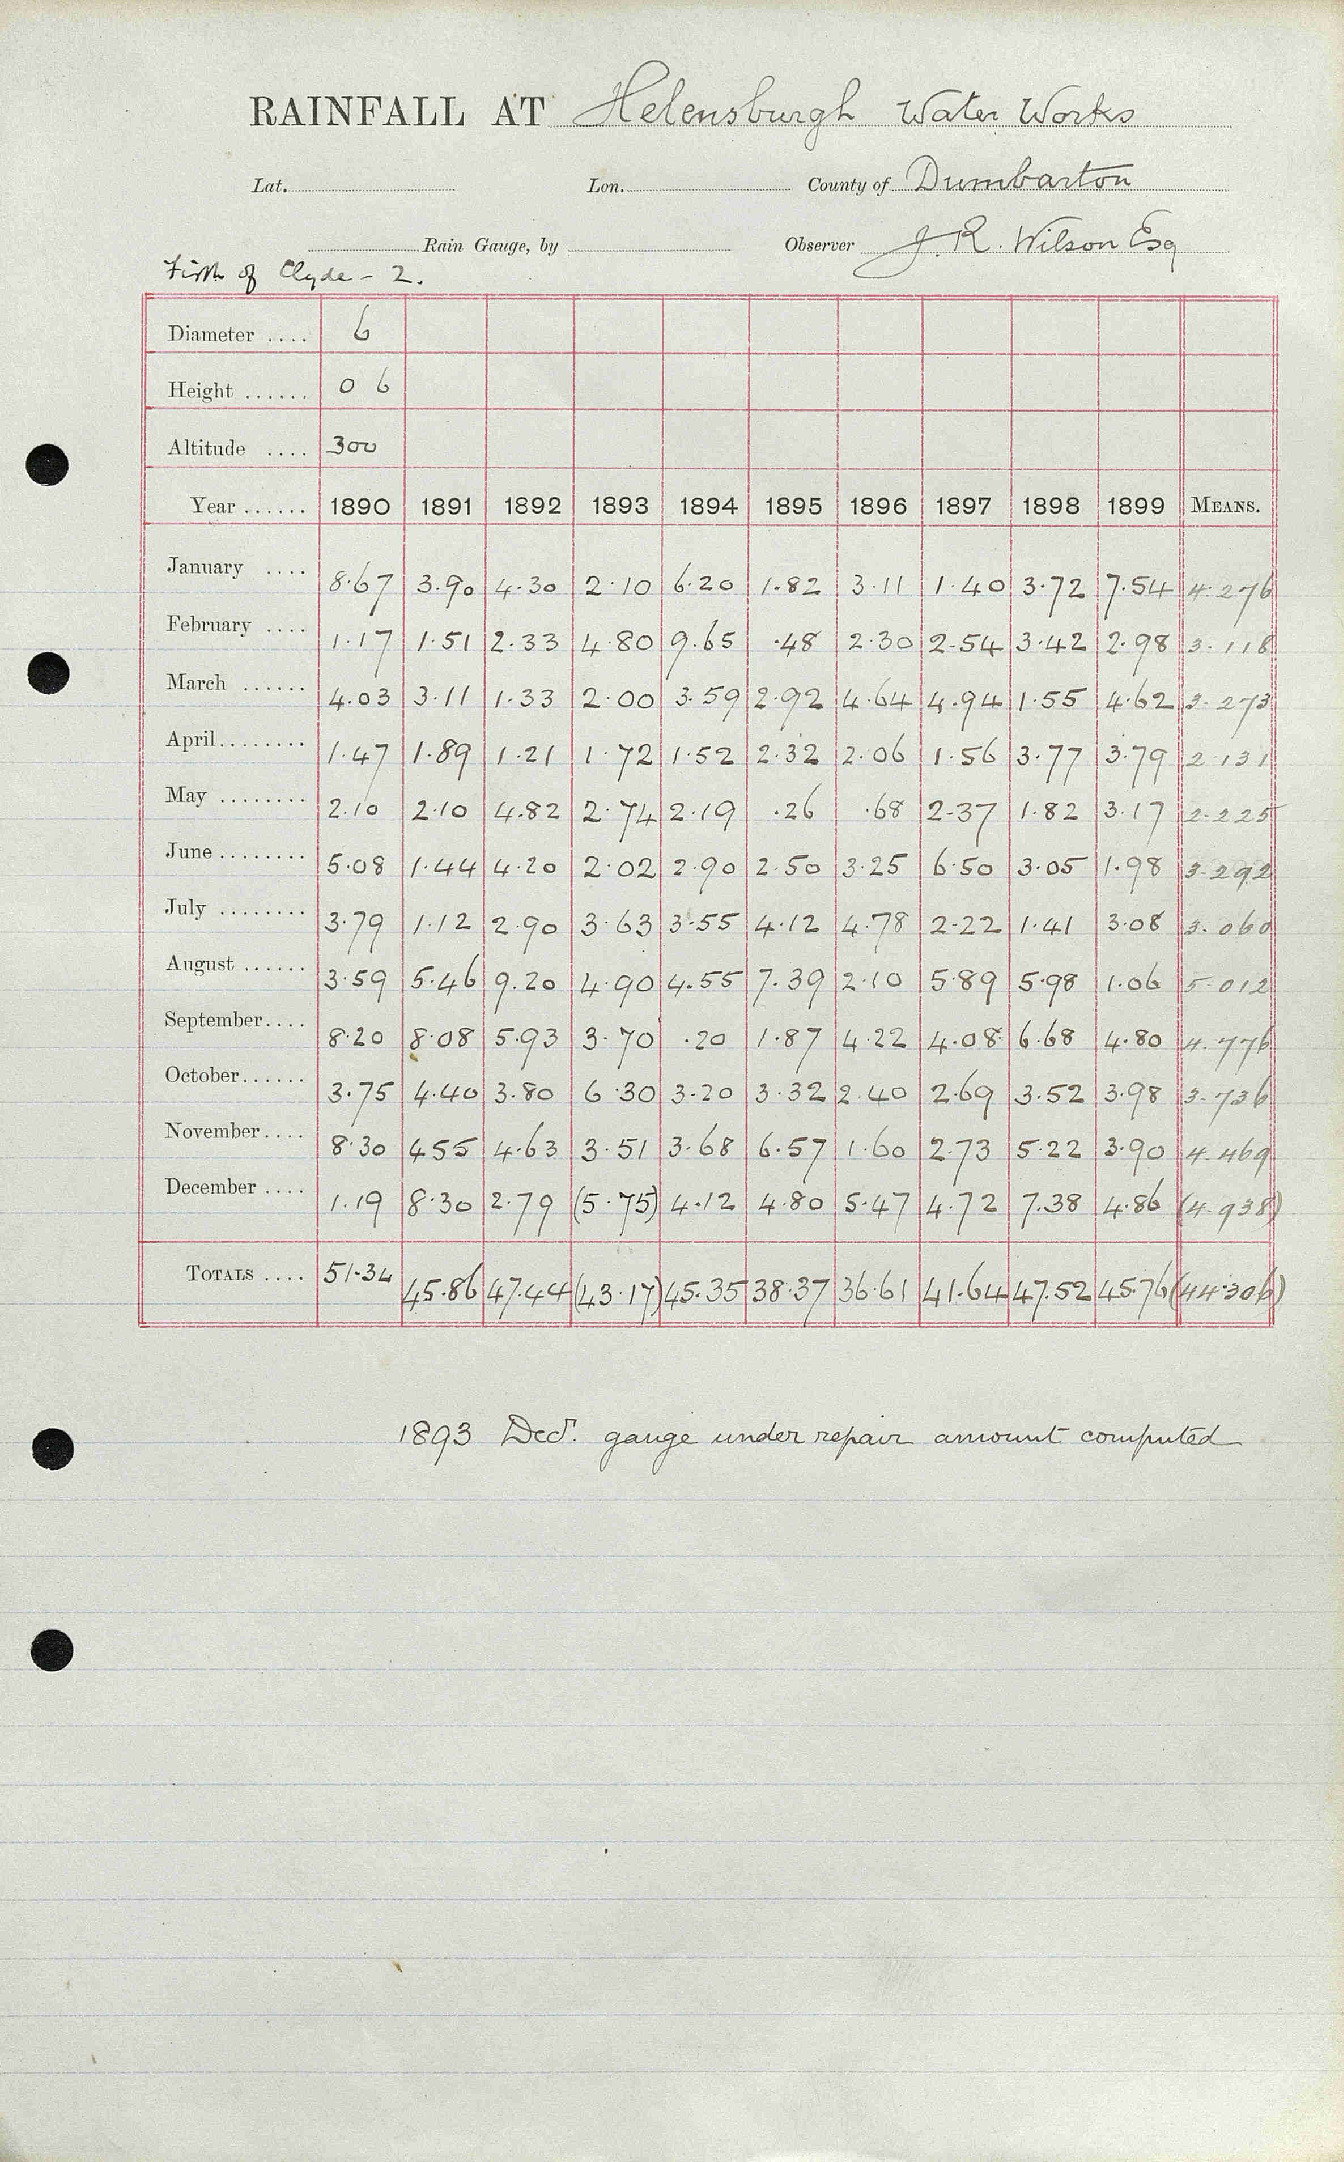 RAINFALL AT Helensburgh Water Works
Lat. Lon. County of Dumbarton
Rain Gauge, by Observer J. R. Wilson Esq
Firth of Clyde - 2.
Diameter .... 6
Height ...... 0 6
Altitude .... 300
Year ...... 1890 1891 1892 1893 1894 1895 1896 1897 1898 1899 MEANS.
January .... 8.67 3.90 4.30 2.10 6.20 1.82 3.11 1.40 3.72 7.54 4.276
February .... 1.17 1.51 2.33 4.80 9.65 .48 2.30 2.54 3.42 2.98 3.118
March ...... 4.03 3.11 1.33 2.00 3.59 2.92 4.64 4.94 1.55 4.62 3.273
April........ 1.47 1.89 1.21 1.72 1.52 2.32 2.06 1.56 3.77 3.79 2.131
May ........ 2.10 2.10 4.82 2.74 2.19 .26 .68 2.37 1.82 3.17 2.225
June ........ 5.08 1.44 4.20 2.02 2.90 2.50 3.25 6.50 3.05 1.98 3.292
July ........ 3.79 1.12 2.90 3.63 3.55 4.12 4.78 2.22 1.41 3.08 3.060
August ...... 3.59 5.46 9.20 4.90 4.55 7.39 2.10 5.89 5.98 1.06 5.012
September.... 8.20 8.08 5.93 3.70 .20 1.87 4.22 4.08 6.68 4.80 4.776
October...... 3.75 4.40 3.80 6.30 3.20 3.32 2.40 2.69 3.52 3.98 3.736
November.... 8.30 4.55 4.63 3.51 3.68 6.57 1.60 2.73 5.22 3.90 4.469
December .... 1.19 8.30 2.79 (5.75) 4.12 4.80 5.47 4.72 7.38 4.86 (4.938)
TOTALS .... 51.34 45.86 47.44 (43.17) 45.35 38.37 36.61 41.64 47.52 45.76 (44.306)
1893 Decr. gauge under repair amount computed